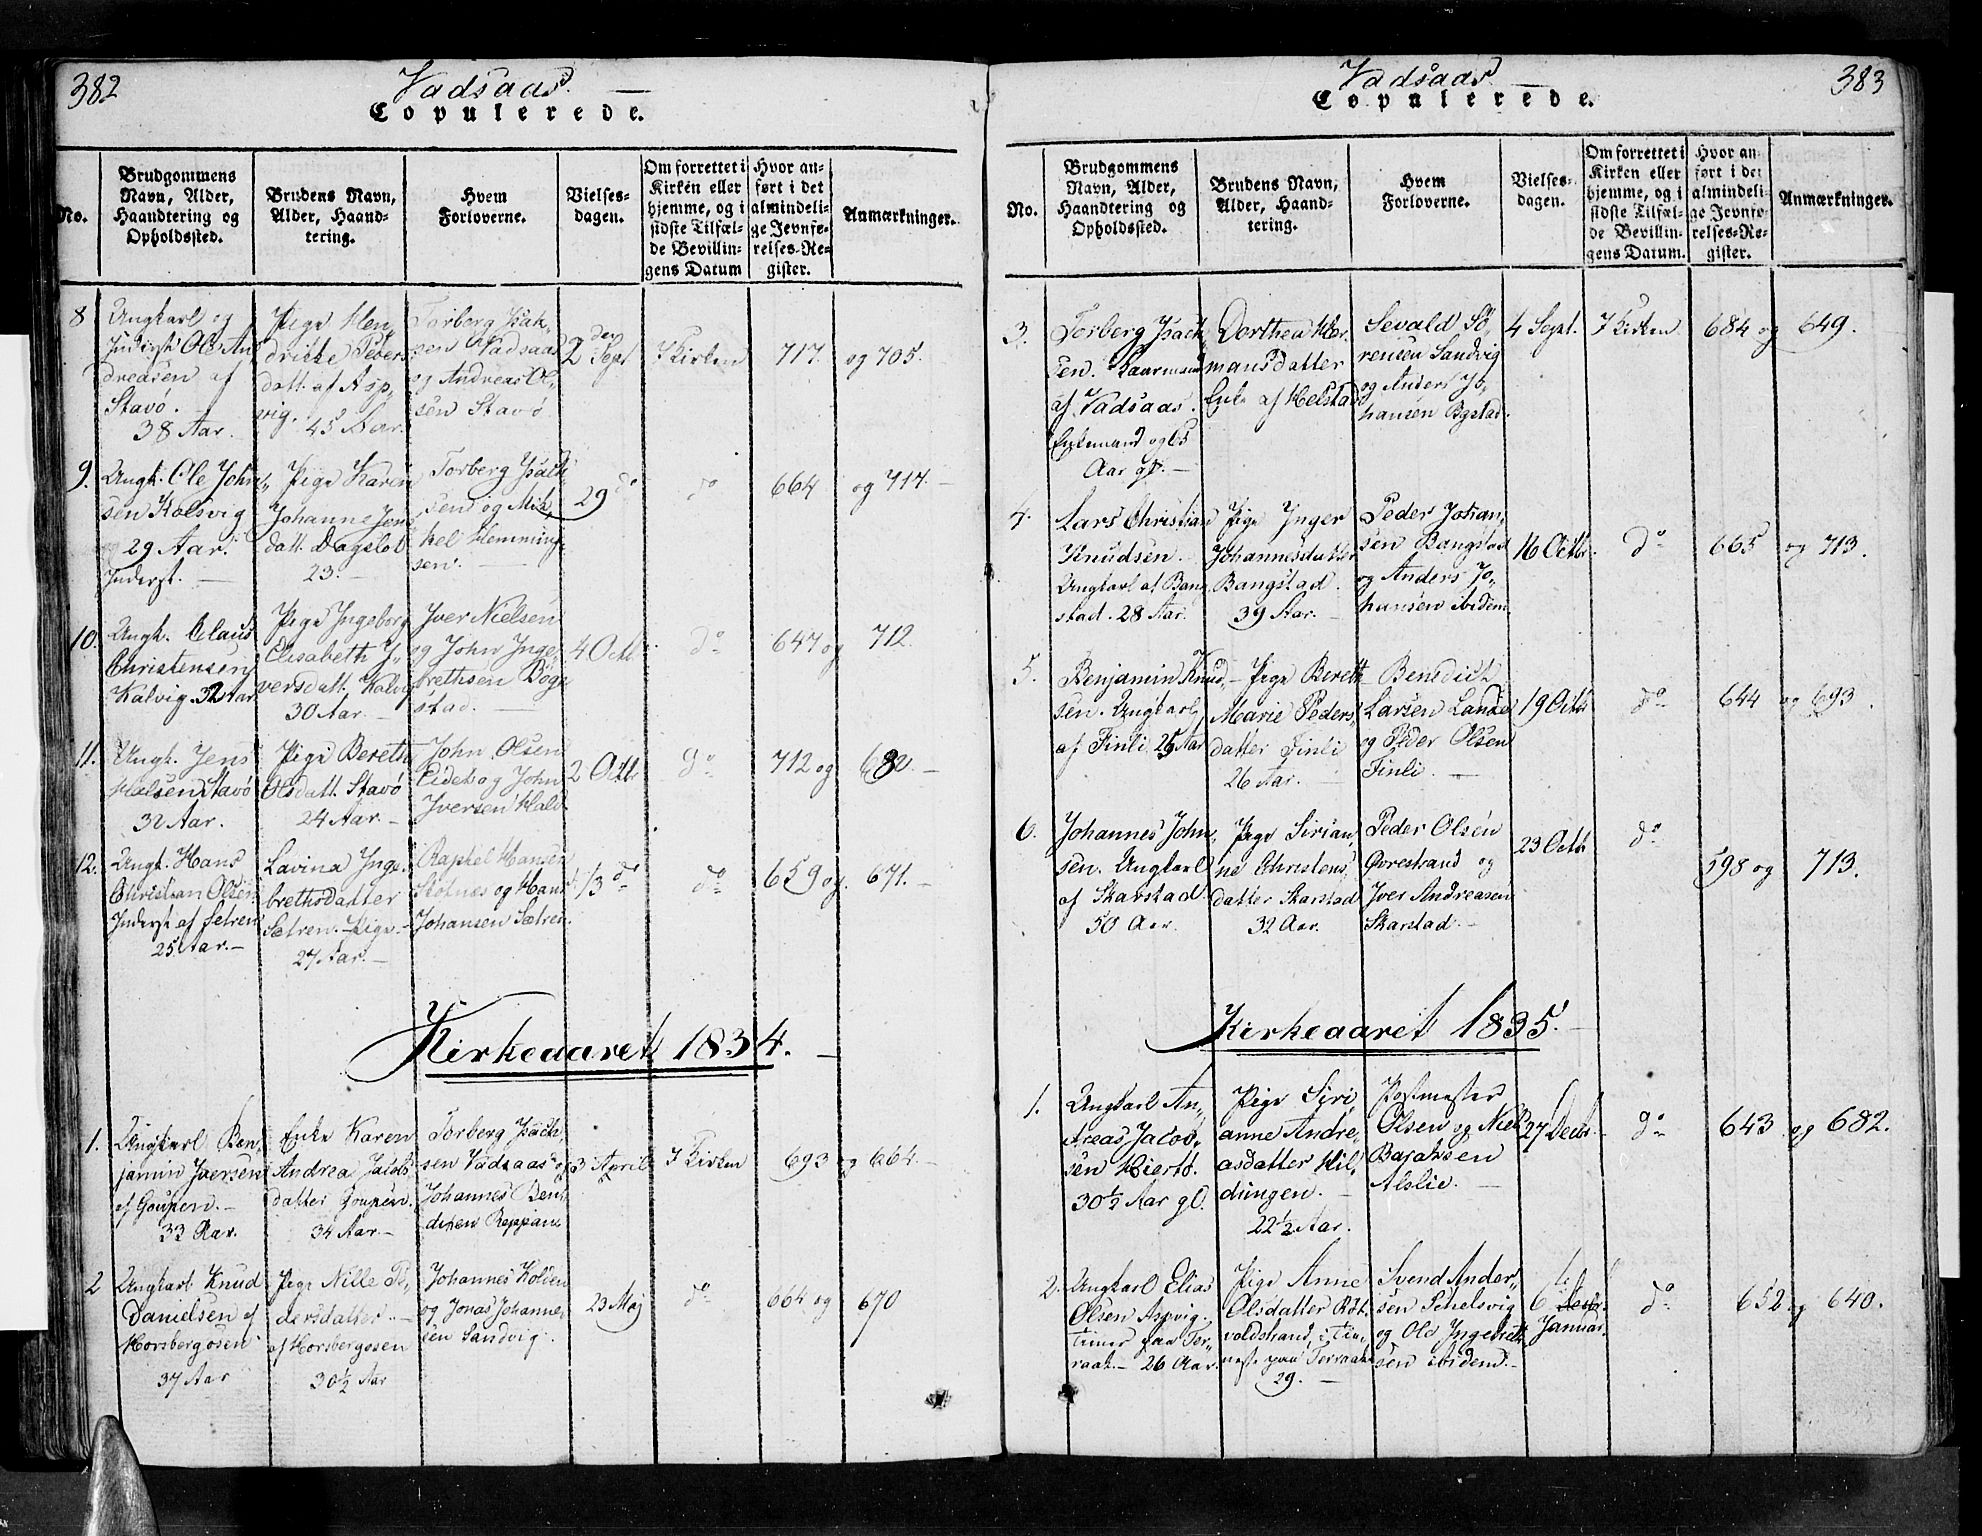 382
Vadsaas
Copulerede.
No.
Brudgommens
Navn, Alder,
Haandtering og
Opholdssted.
Brudens Navn,
Alder, Haand-
tering.
Hvem
Forloverne.
Vielses-
dagen.
Om forrettet i
Kirken eller
hjemme, og i
sidste Tilfæl-
de Bevillin-
gens Datum
Hvor an-
ført i det
almindeli-
ge Jevnfø-
relses-Re-
gister.
Anmærkninger.
8
Ungkarl og
Inderst Ole An
dreasen af
Stavø.
38 Aar.
Pige Hen,
drikke Peder
datt. af Asp,
vig. 45 Aar.
Torberg Isak,
sen Vadsaas
og Andreas Ol,
sen Stavø
2 den Sept
I Kirken
717.
og 705.
9.
Ungk. Ole John,
sen Kolsvig
29 Aar.
Inderst.
Pige Karen
Johanne Jens
datt. Dagslot
23.
Torberg Isach
sen og Mik,
kel Hemming,
sen.
29 do
do
664
og 714.
10.
Ungk. Claus
Christensen
Kalvig 32 Aar
Pige Ingeborg
Elisabeth I,
versdatt. Kalvig
30 Aar.
Iver Nielsen
og John Inge,
brethsen Bøg,
stad.
4 Octb.
do
647 og
712.
11.
Ungk. Jens
Halsen Stavø
32 Aar.
Pige Bereth
Olsdatt. Stavø
24 Aar.
John Olsen
Eidet og John
Iversen Halv
2 Octbr
do
712 og
682.
12.
Ungk. Hans
Christian Olsen
Inderst af Setren
25 Aar.
Lavina Inge,
brethsdatter
Sætren. Pige.
27 Aar.
Raphel Hansen
Stotnæs og Hans
Johansen Sætren
13 do
do
659 og
671.
Kirkeaaret 1834.
1.
Ungkarl Ben,
jamin Iversen
af Goupen.
33 Aar.
Enke Karen
Andrea Jacobs
datter Goupen.
34 Aar.
Torberg Isach,
sen Vadsaas og
Johannes Ben,
dixen Reppane
3 April
I Kirken
693 og
664.
2
Ungkarl Knud
Danielsen af
Horsbergosen
37 Aar
Pige Nille Pe,
dersdatter
af Horsbergosen
30½ Aar
Johannes Holden
og Jonas Johanne,
sen Sandvig.
23 Maj
do
664 og
670
383
Vadsaas
Copulerede.
No.
Brudgommens
Navn, Alder,
Haandtering og
Opholdssted.
Brudens Navn,
Alder, Haand-
tering.
Hvem
Forloverne.
Vielses-
dagen.
Om forrettet i
Kirken eller
hjemme, og i
sidste Tilfæl-
de Bevillin-
gens Datum.
Hvor an-
ført i det
almindeli-
ge Jevnfø-
relses-Re-
gister.
Anmærkninger.
3.
Torberg Isach,
sen. Gaarmand
af Vadsaas.
Enkemand og 65
Aar gl.
Dorthea Hor
mansdatter
Enke af Helstad
Sevald Sø,
rensen Sandvig
og Anders Jo,
hansen Bøstad.
4 Sept.
I Kirken
684 og
649.
4.
Lars Christian
Knudsen.
Ungkarl af Bang,
stad. 28 Aar.
Pige Inger
Johannesdatter
Bangstad.
39 Aar.
Peder Johan,
sen Bangstad
og Anders Jo,
hansen ibidem
16 Octbr.
do
665
og 713.
5.
Benjamin Knud,
sen. Ungkarl
af Finli 25 Aar
Pige Bereth
Marie Peders,
datter Finli
26 Aar.
Benedict
Larsen Lande
og Peder Olsen
Finli.
19 Octbr
do
644
og 693.
6.
Johannes John,
sen. Ungkarl
af Skarstad
50 Aar.
Pige Sirian,
ne Christens,
datter Skarstad
32 Aar.
Peder Olsen
Øvrestrand og
Iver Andreasen
Skarstad.
23 Octbr
do
598 og
713.
Kirkeaaret 1835.
1.
Ungkarl An,
dreas Jacob,
sen Hiertø.
30½ Aar gl.
Pige Siri
anne Andre,
asdatter Kil,
dungen.
22½ Aar.
Postmester
Olsen og Niels
Barahsen
Alslie.
27 Decbr.
do
643
og 682.
2.
Ungkarl Elias
Olsen Aspvig.
tiener paa Tor,
raak. 26 Aar.
Pige Anne
Olsdatter Røt,
voldshand, i Tie,
neste paa Torraak
29.
Svend Ander,
sen Pehelsvig
og Ole Ingebrith
sen ibidem.
6te Decbr.
Januar.
do
652 og
640.